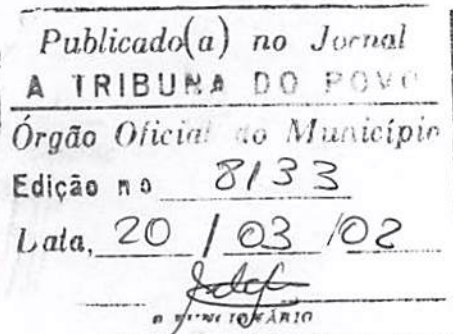 Publicado(a) no Jornal
A TRIBUNA DO POVO
Órgão Oficial do Município
Edição no 8133
Data, 20 / 03 / 02
O FUNCIONÁRIO